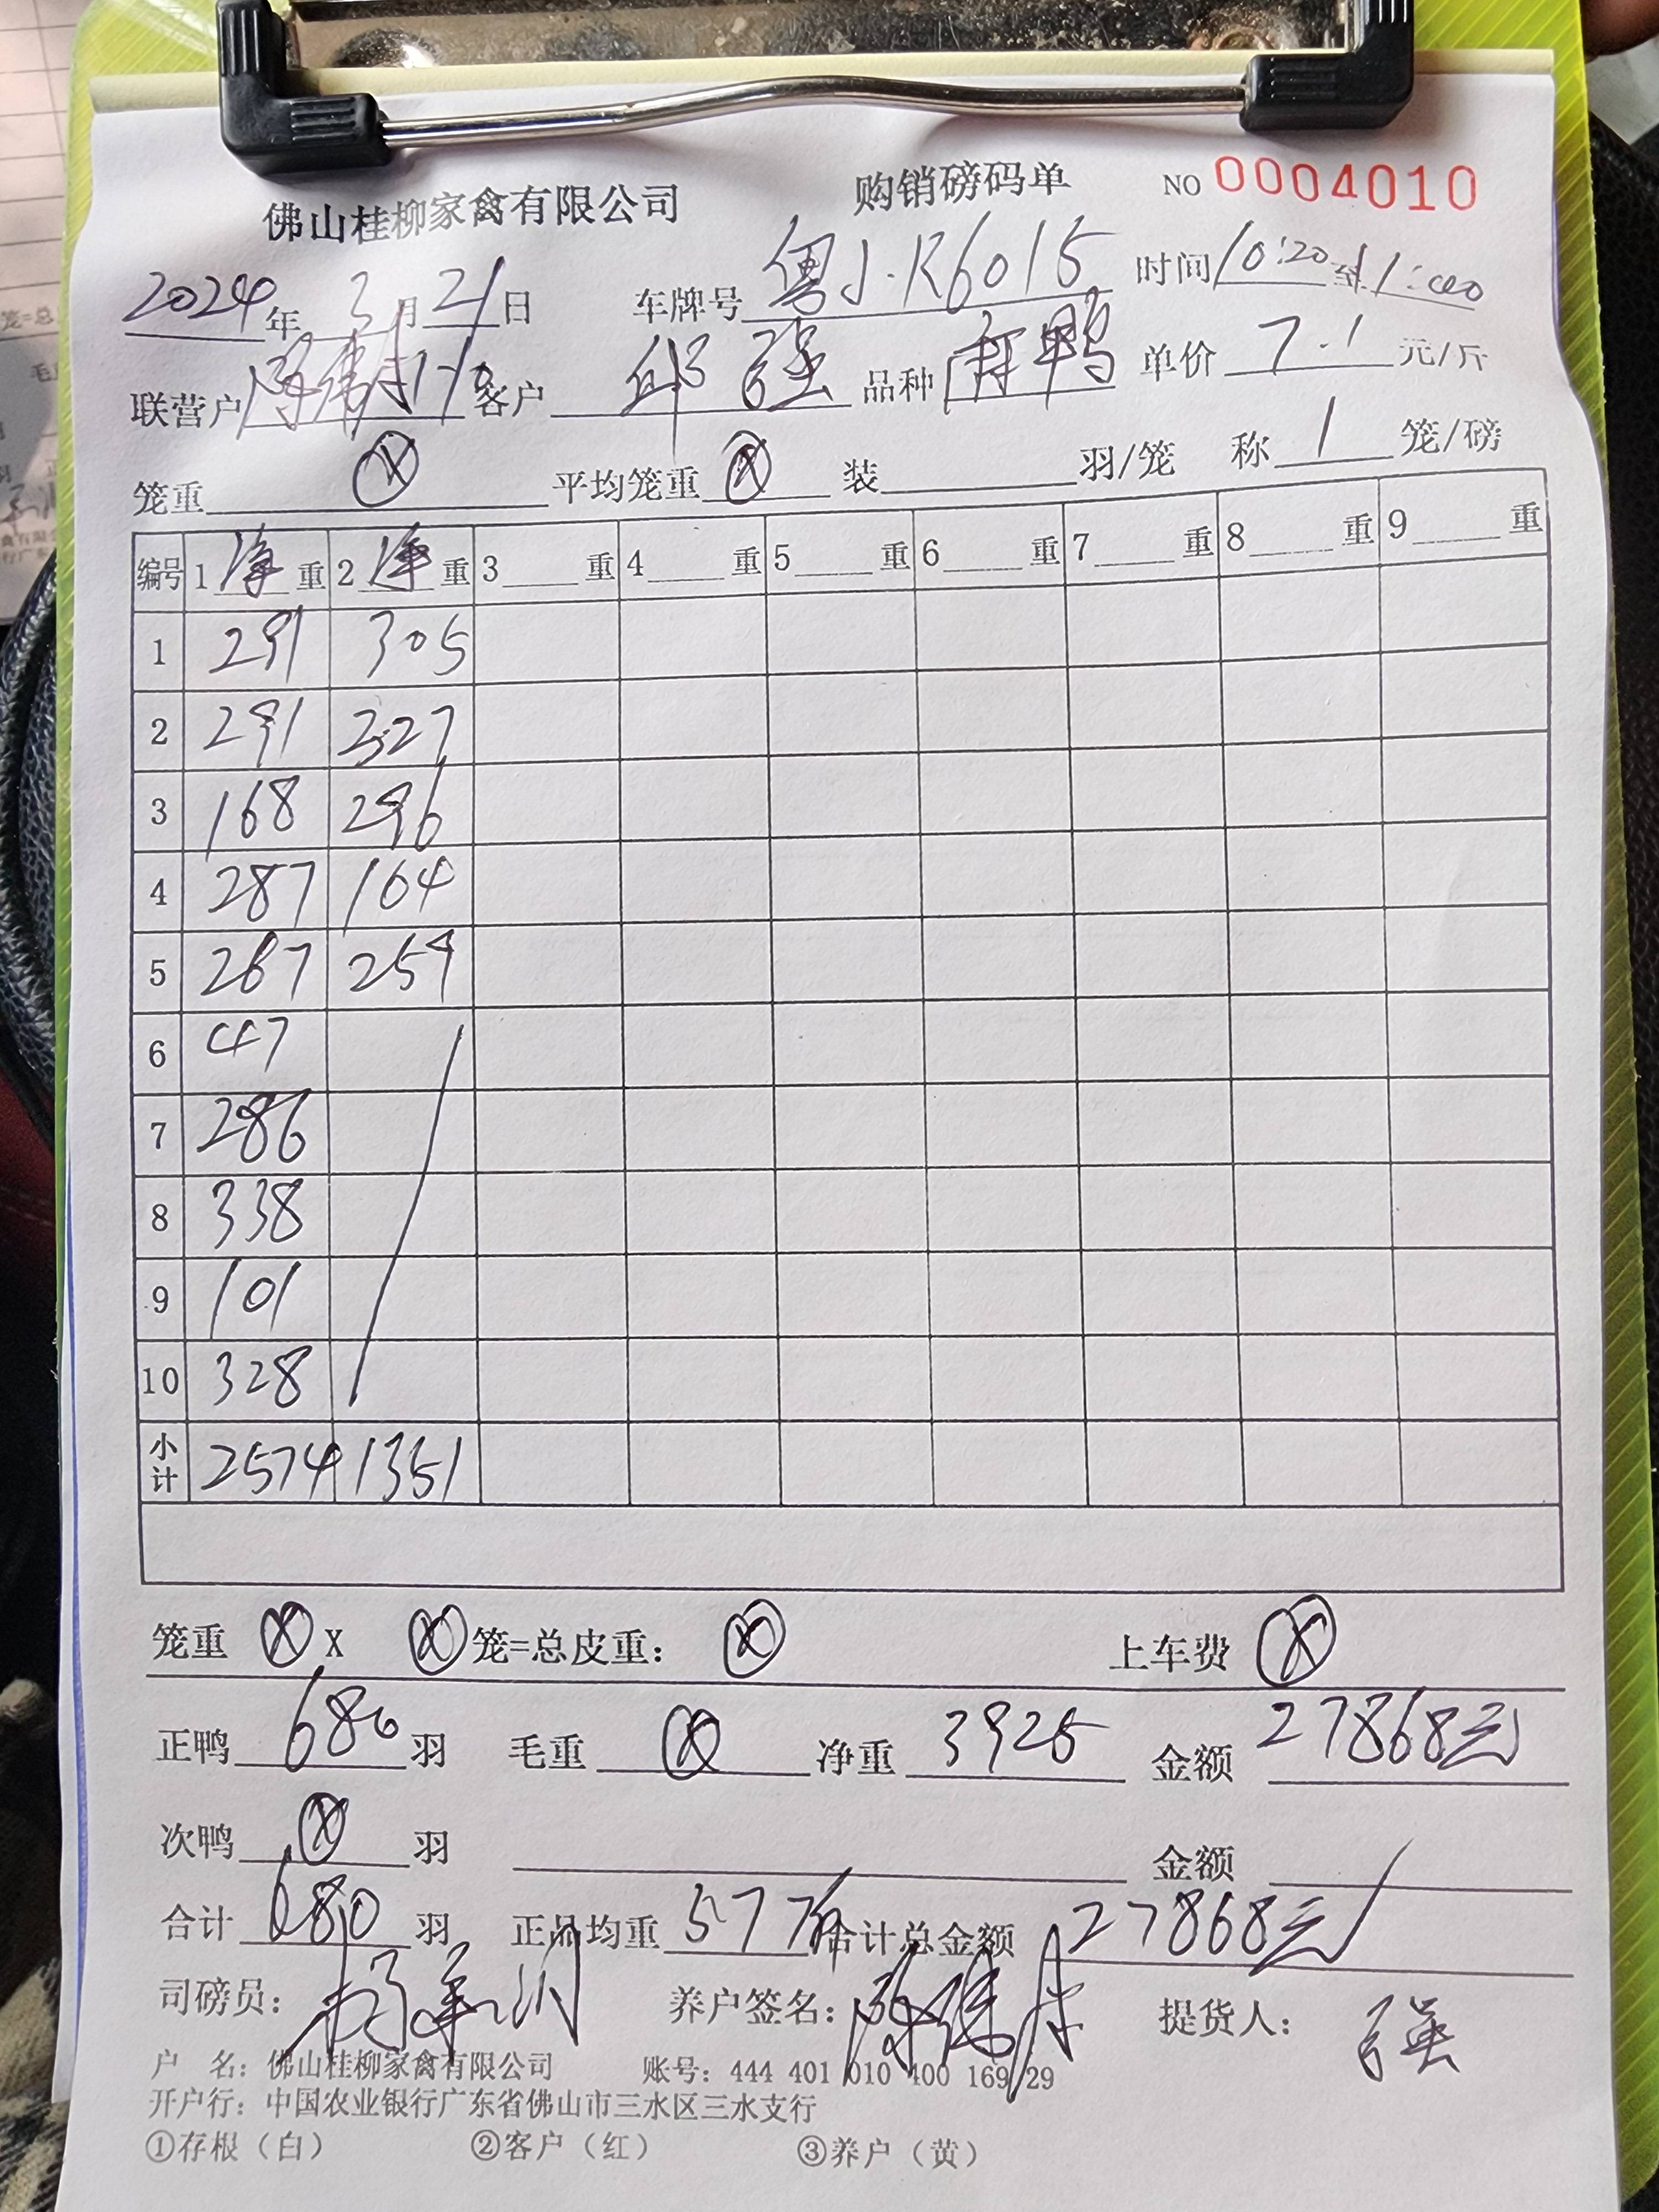 佛山桂柳家禽有限公司 购销磅码单 NO 0004010
2024年 3月21日 车牌号 粤J·K6015 时间 10:20至11:00
联营户 客户 邱强 品种 麻鸭 单价 7.1 元/斤
笼重 ⓧ 平均笼重 ⓧ 装 羽/笼 称 1 笼/磅
编号 1 净 重 2 净 重 3 重 4 重 5 重 6 重 7 重 8 重 9 重
1 291 305
2 291 327
3 168 296
4 287 164
5 267 259
6 47
7 286
8 338
9 101
10 328
小计 2574 1351
笼重 ⓧ X ⓧ 笼=总皮重: ⓧ 上车费 ⓧ
正鸭 680 羽 毛重 ⓧ 净重 3925 金额 27868元
次鸭 ⓧ 羽 金额
合计 680 羽 正品均重 577 合计总金额 27868元
司磅员: 养户签名: 提货人: 强
户 名: 佛山桂柳家禽有限公司 账号: 444 401 010 400 169 29
开户行: 中国农业银行广东省佛山市三水区三水支行
①存根(白) ②客户(红) ③养户(黄)